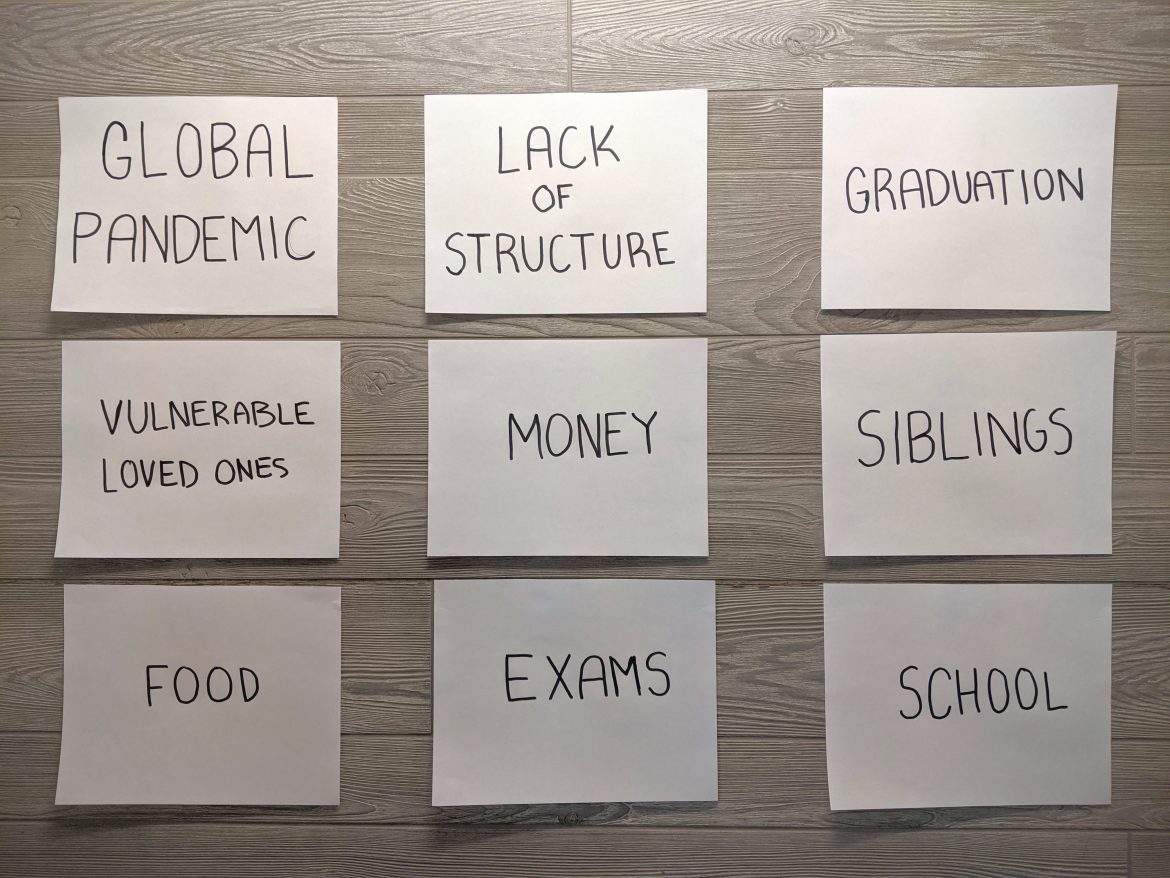 GLOBAL
PANDEMIC
LACK
OF
STRUCTURE
GRADUATION
VULNERABLE
LOVED ONES
MONEY
SIBLINGS
FOOD
EXAMS
SCHOOL